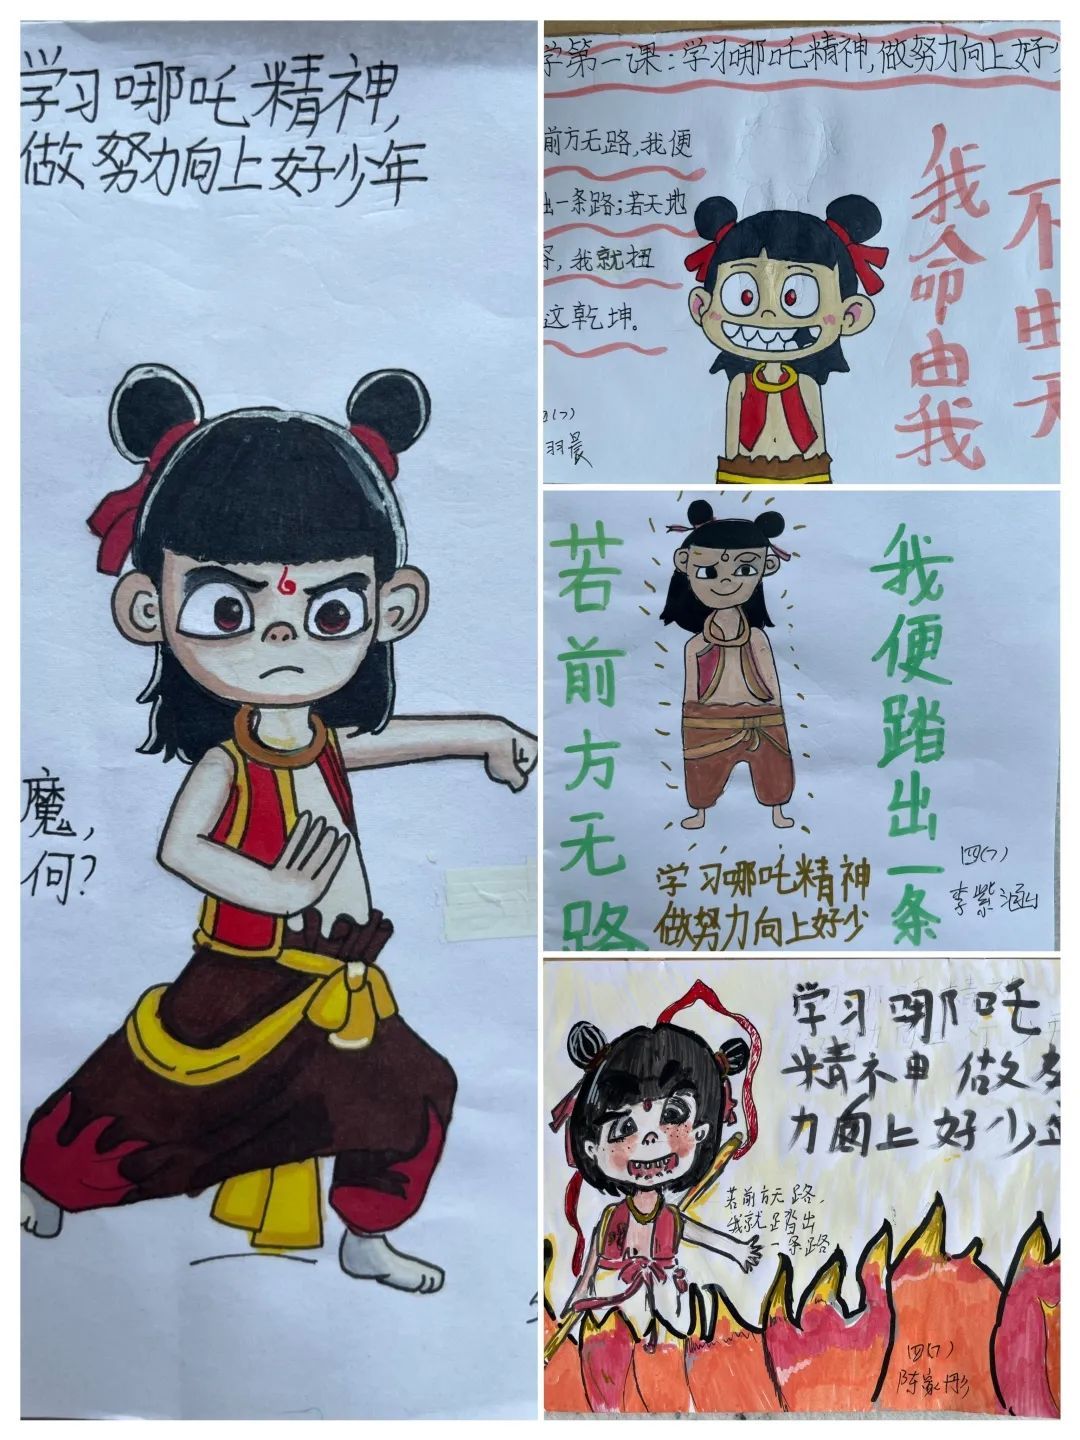 学习哪吒精神,
做努力向上好少年
魔,
何?
学第一课:学习哪吒精神,做努力向上好少
前方无路,我便
出一条路;若天地
容,我就扭
这乾坤。
四(7)
羽晨
我命由我
不由天
若前方无路
我便踏出一条
学习哪吒精神
做努力向上好少
四(7)
李紫涵
学习哪吒
精神 做努
力向上好少
若前方无路,
我就踏出
一条路
四(7)
陈家彤